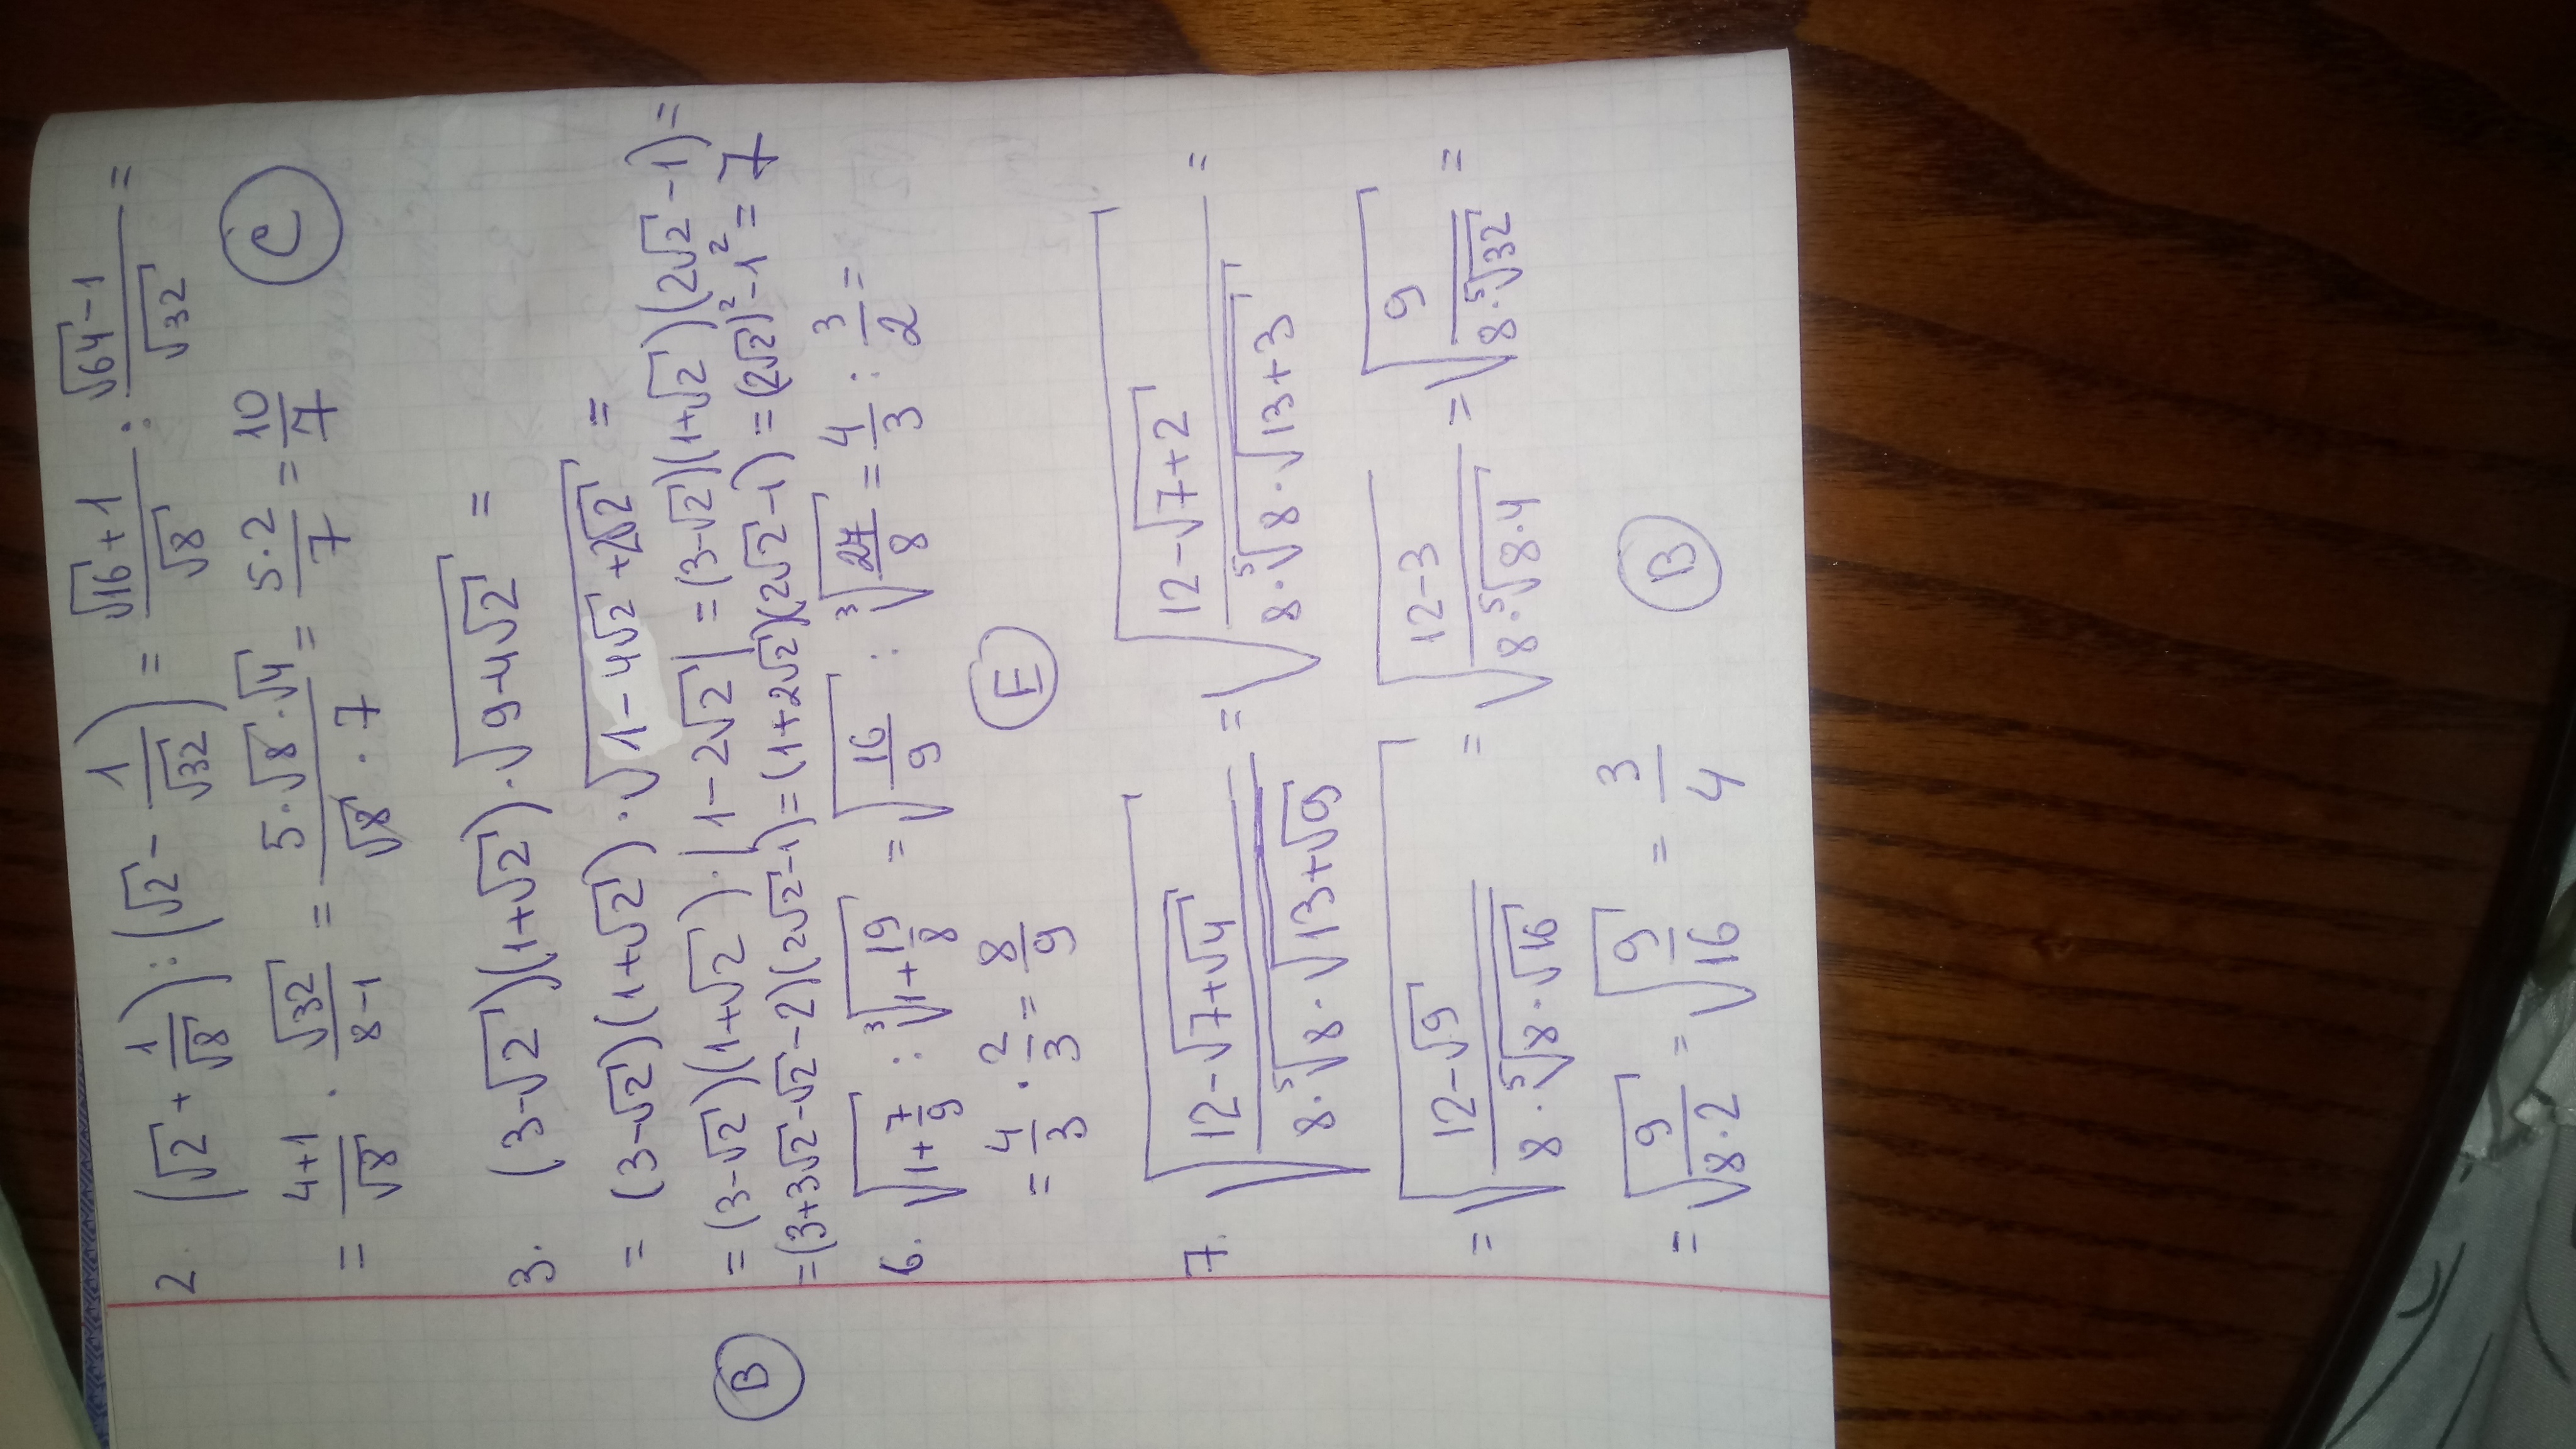 2. (√2 + 1/√8) : (√2 - 1/√32) = (√16+1)/√8 : (√64-1)/√32 =
= (4+1)/√8 · √32/(8-1) = (5·√8·√4)/(√8·7) = (5·2)/7 = 10/7 C
3. (3-√2)(1+√2)·√(9-4√2) =
= (3-√2)(1+√2)·√(1-4√2+2√2²) =
= (3-√2)(1+√2)·|1-2√2| = (3-√2)(1+√2)(2√2-1) =
B =(3+3√2-√2-2)(2√2-1)=(1+2√2)(2√2-1)=(2√2)²-1²=7
6. √(1+7/9) : ³√(1+19/8) = √(16/9) : ³√(27/8) = 4/3 : 3/2 =
= 4/3 · 2/3 = 8/9 E
7. √((12-√(7+√4))/(8·⁵√(8·√(13+√9)))) = √((12-√(7+2))/(8·⁵√(8·√(13+3)))) =
= √((12-√9)/(8·⁵√(8·√16))) = √((12-3)/(8·⁵√(8·4))) = √(9/(8·⁵√32)) =
= √(9/(8·2)) = √(9/16) = 3/4 B